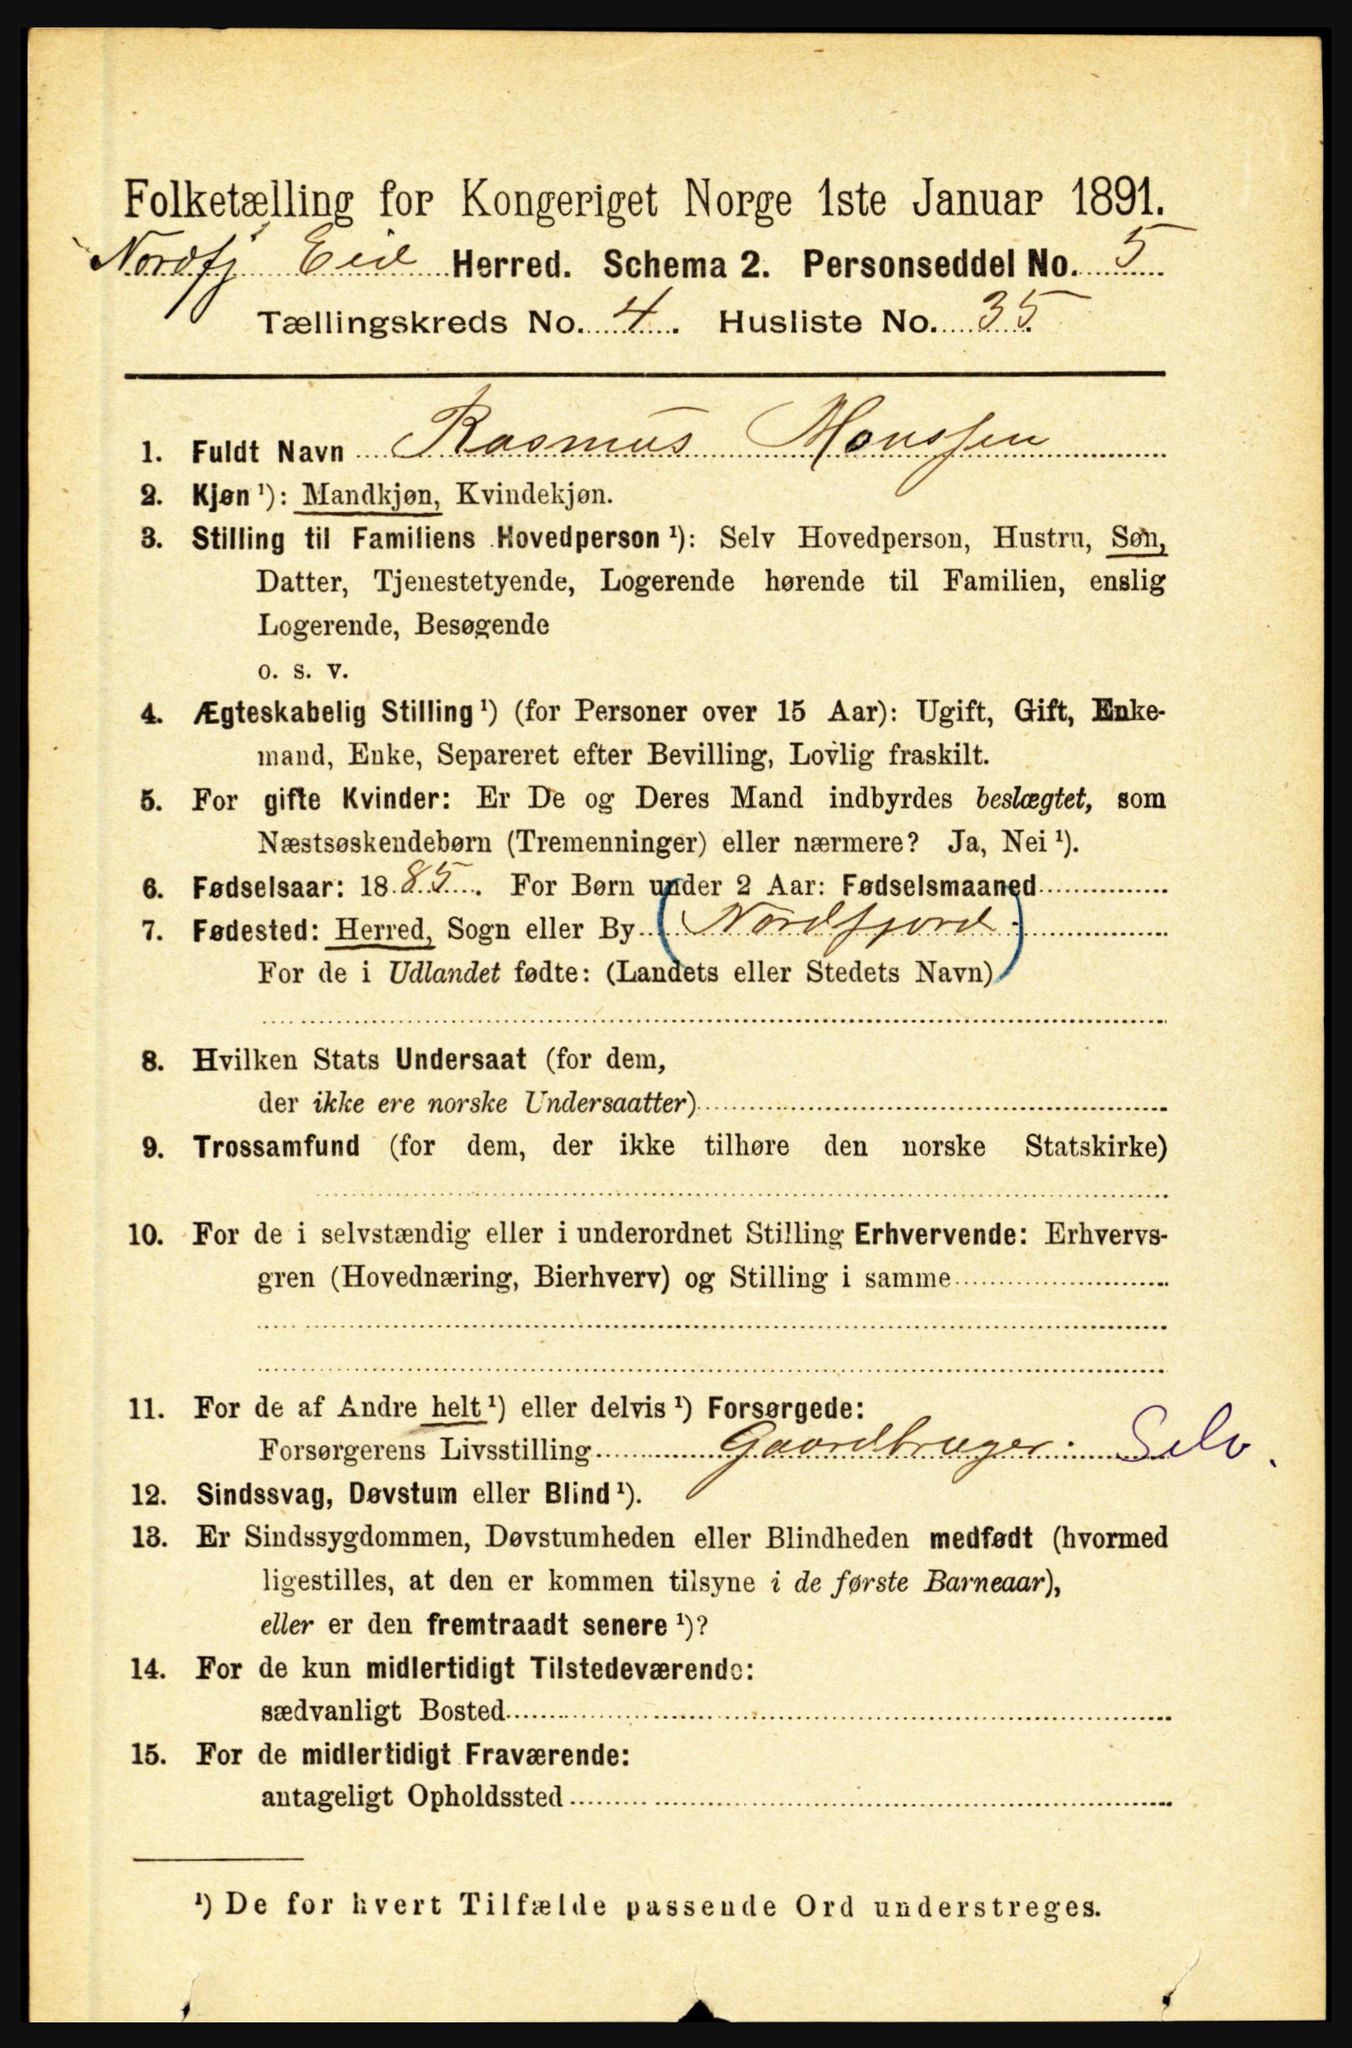 Folketælling for Kongeriget Norge 1ste Januar 1891.
Nordfj Eid Herred. Schema 2. Personseddel No. 5
Tællingskreds No. 4. Husliste No. 35
1. Fuldt Navn Rasmus Monssen
2. Kjøn ¹): Mandkjøn, Kvindekjøn.
3. Stilling til Familiens Hovedperson ¹): Selv Hovedperson, Hustru, Søn,
Datter, Tjenestetyende, Logerende hørende til Familien, enslig
Logerende, Besøgende
o. s. v.
4. Ægteskabelig Stilling ¹) (for Personer over 15 Aar): Ugift, Gift, Enke-
mand, Enke, Separeret efter Bevilling, Lovlig fraskilt.
5. For gifte Kvinder: Er De og Deres Mand indbyrdes beslægtet, som
Næstsøskendebørn (Tremenninger) eller nærmere? Ja, Nei ¹).
6. Fødselsaar: 1885. For Børn under 2 Aar: Fødselsmaaned
7. Fødested: Herred, Sogn eller By (Nordfjord)
For de i Udlandet fødte: (Landets eller Stedets Navn)
8. Hvilken Stats Undersaat (for dem,
der ikke ere norske Undersaatter)
9. Trossamfund (for dem, der ikke tilhøre den norske Statskirke)
10. For de i selvstændig eller i underordnet Stilling Erhvervende: Erhvervs-
gren (Hovednæring, Bierhverv) og Stilling i samme
11. For de af Andre helt ¹) eller delvis ¹) Forsørgede:
Forsørgerens Livsstilling Gaardbruger. Selv.
12. Sindssvag, Døvstum eller Blind ¹).
13. Er Sindssygdommen, Døvstumheden eller Blindheden medfødt (hvormed
ligestilles, at den er kommen tilsyne i de første Barneaar),
eller er den fremtraadt senere ¹)?
14. For de kun midlertidigt Tilstedeværende:
sædvanligt Bosted
15. For de midlertidigt Fraværende:
antageligt Opholdssted
¹) De for hvert Tilfælde passende Ord understreges.